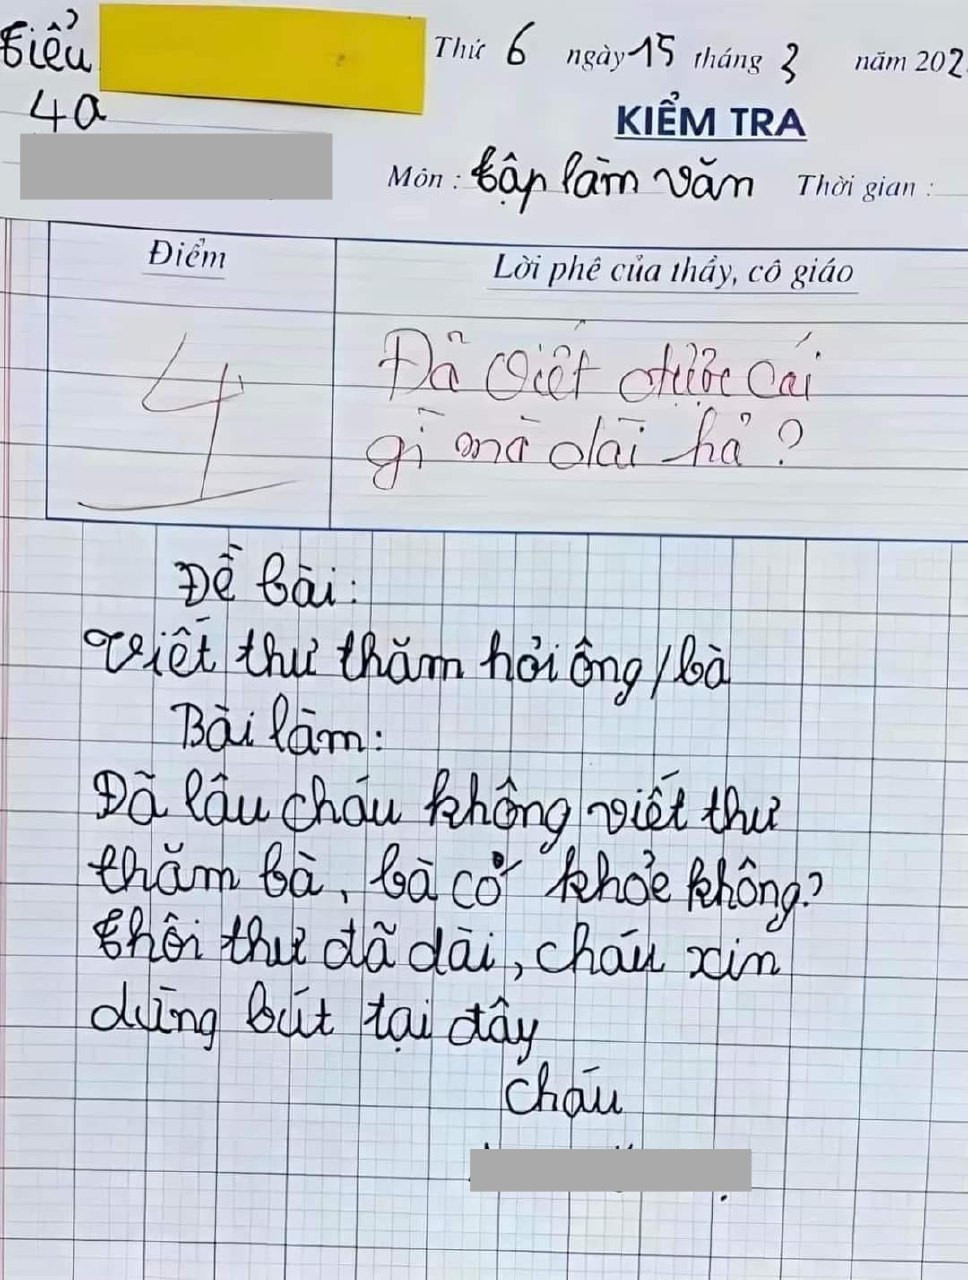 Tiểu
Thứ 6 ngày 15 tháng 3 năm 202
4a
KIỂM TRA
Môn : Tập làm văn Thời gian :
Điểm
Lời phê của thầy, cô giáo
4
Đã viết được cái
gì mà dài hả?
Đề bài:
Viết thư thăm hỏi ông/bà
Bài làm:
Đã lâu cháu không viết thư
thăm bà, bà có khỏe không?
Thôi thư đã dài, cháu xin
dừng bút tại đây
Cháu